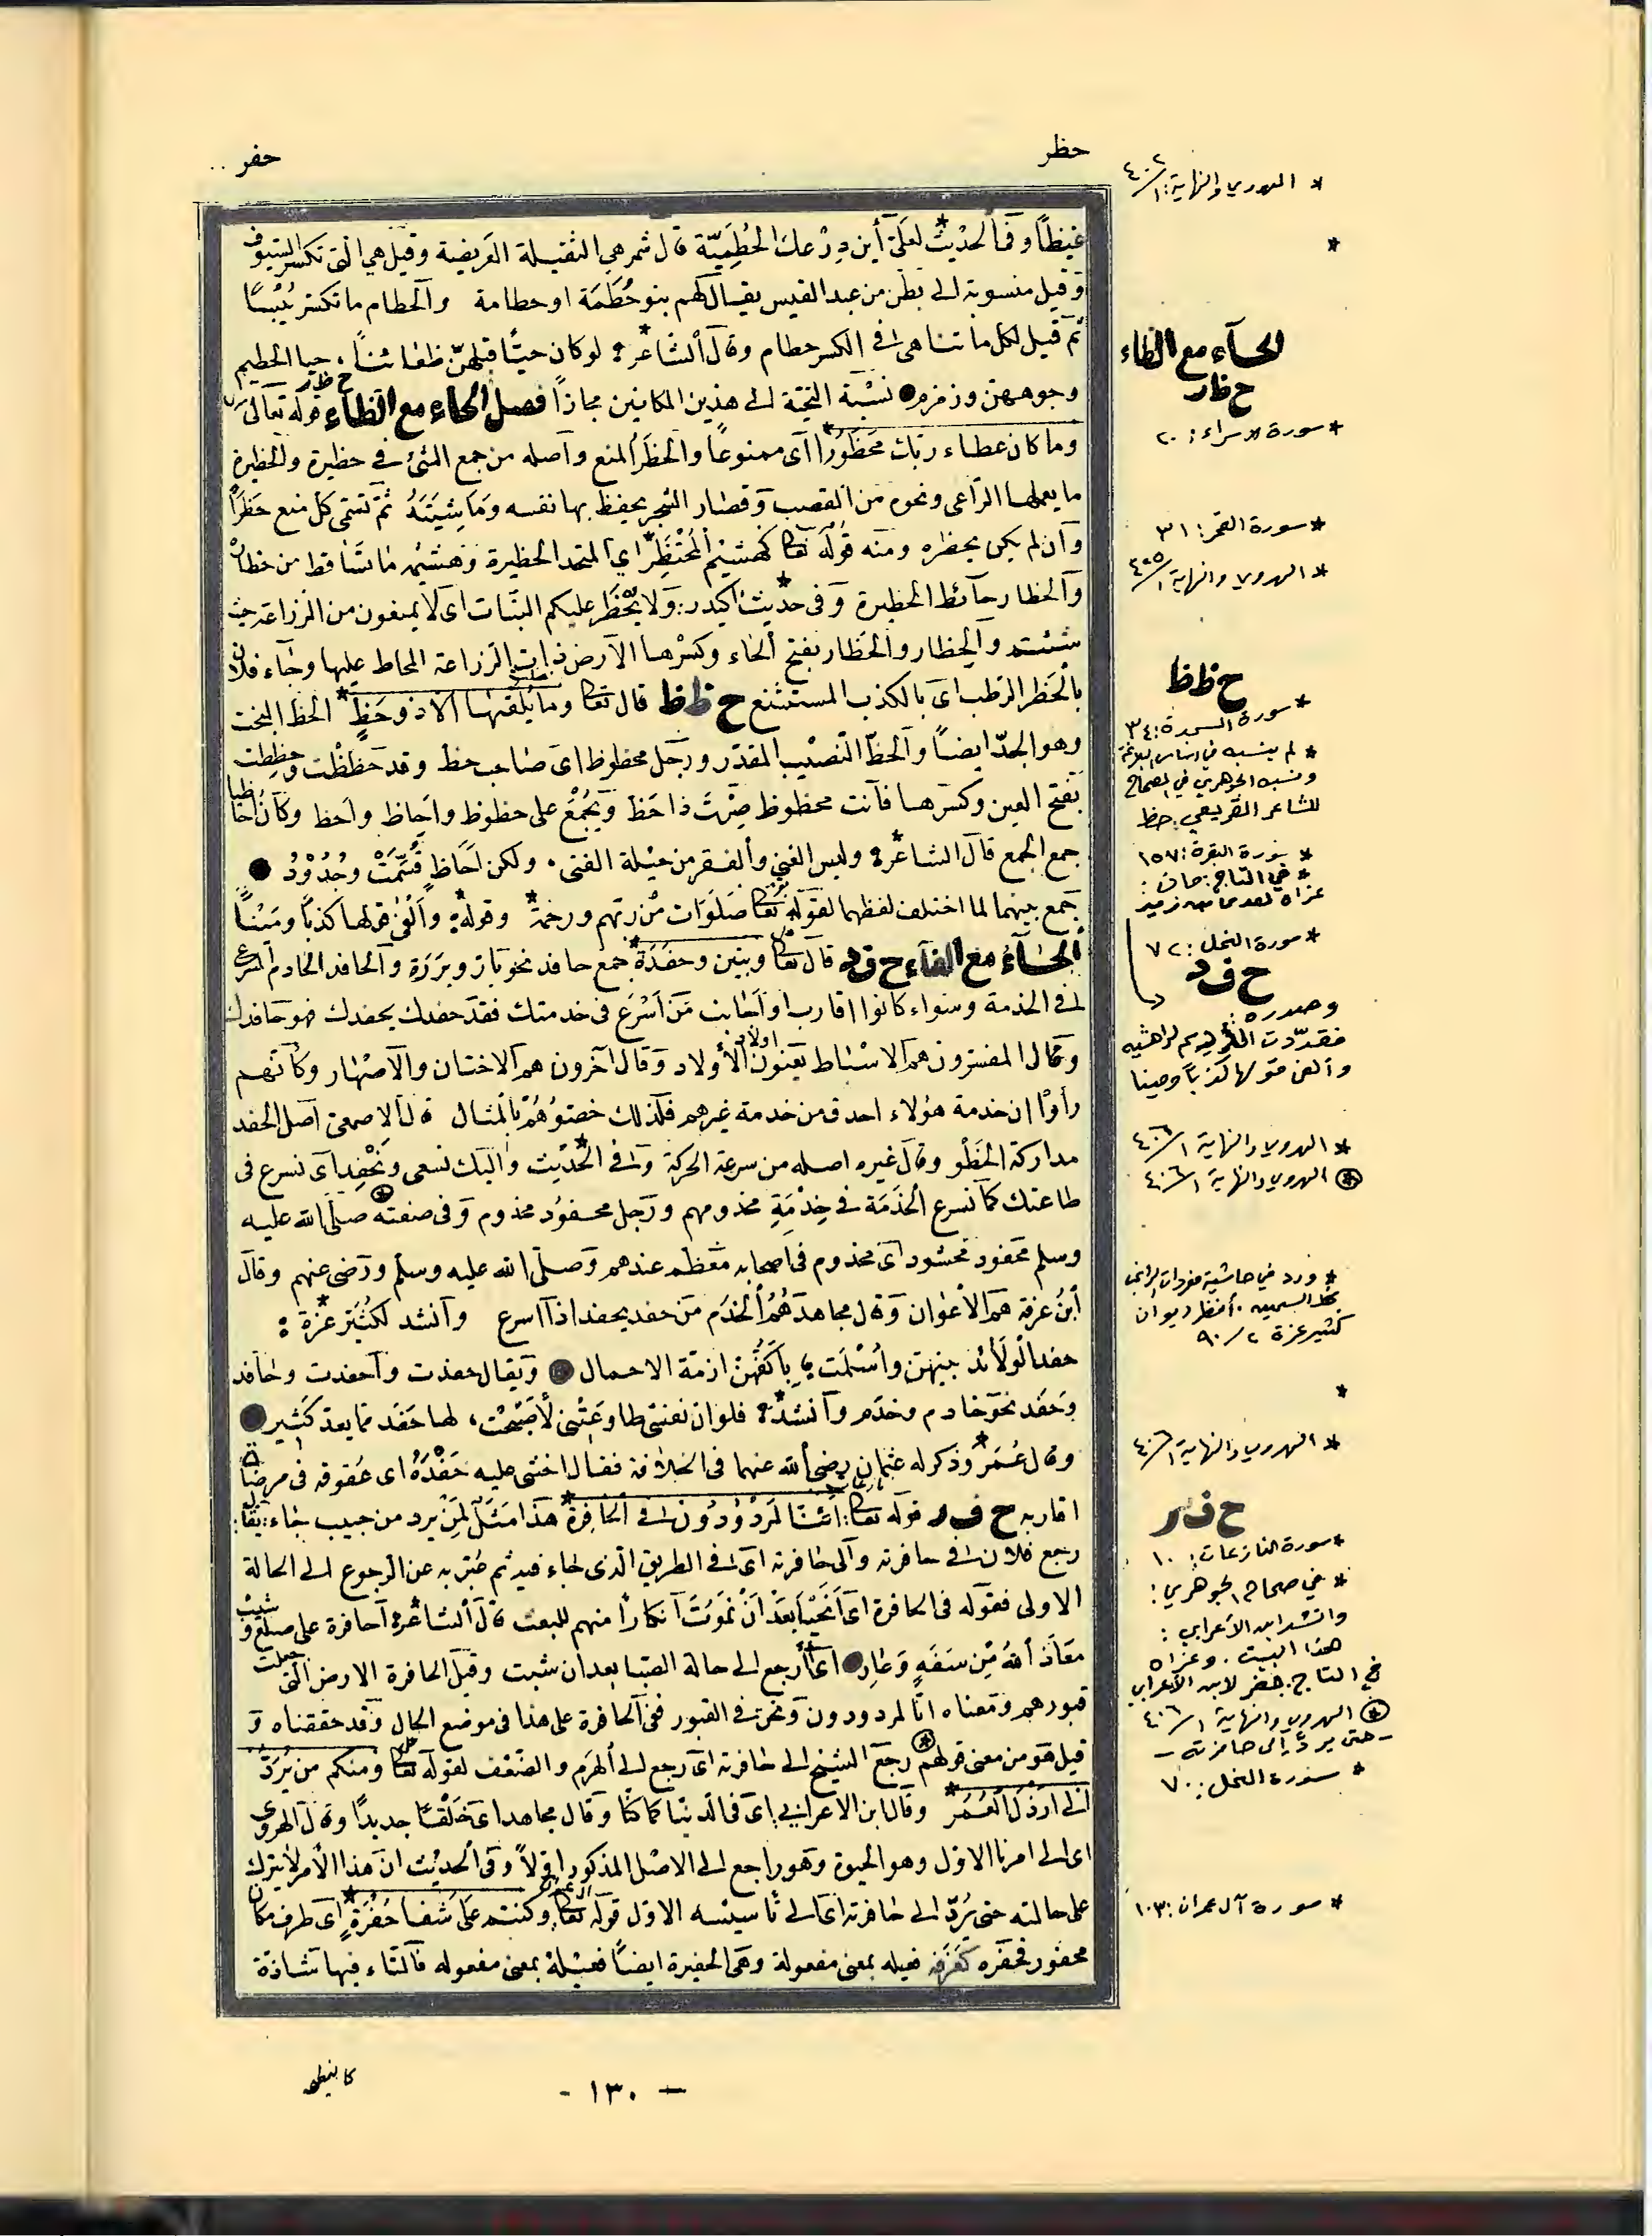 حظر
حفر ..
غيظاً وفى الحديث لعلىّ أين درعك الحُطَمِيّة قال شمر هي الثقيلة العريضة وقيل هي التى تكسر السيوف
وقيل منسوبة الى بطن من عبد القيس يقال لهم بنو حُطَمَة او حطامة والحطام ما تكسر يُبْسًا
ثم قيل لكل ما تناهى فى الكسر حطام وقال الشاعر لو كان حيّا قبلهنّ ظعائناً ، حيا الحطيم
وجوههن وزمزم نسبة التحية الى هذين المكانين مجازاً فصل الحاء مع الظاء ح ظ ر قوله تعالى
وما كان عطاء ربك محظورًا اى ممنوعاً والحظر المنع واصله من جمع الشئ فى حظيرة والحظيرة
ما يعملها الراعى ونحوه من القصب وقصار الشجر يحفظ بها نفسه وماشيته ثم تسمى كل منع حَظراً
وان لم يكن بحظره ومنه قوله تعا كهشيم المحتظر اي المتخذ الحظيرة وهشيمه ما تساقط من حظاره
والحظار حآئط الحظيرة وفى حديث اكيدر ولا يُحْظَر عليكم النبات اى لا يمنعون من الزراعة حيث
شئتم والحِظار والحَظار بفتح الحاء وكسرها الارض ذات الزراعة المحاط عليها وجاء فلان
بالحَظر الرطب اى بالكذب المستشنع ح ظ ظ قال تعا وما يُلقّٰها الا ذو حَظٍّ الحظ البخت
وهو الجدّ ايضاً والحظّ النصيب المقدّر ورجل محظوظ اى صاحب حظ وقد حَظظْت وحظِظت
بفتح العين وكسرها فانت محظوظ صِرْتَ ذا حَظ ويُجْمَع على حظوظ واحاظ واحظ وكان احاظيا
جمع الجمع قال الشاعر وليس الغني والفقر من حيلة الفتى ٠ ولكن اَحَاظٍ قُسِّمَتْ وجُدُوْدُ
جمع بينهما لما اختلف لفظهما لقوله تعا صَلَوَات من ربّهم ورحمة وقوله وَالْفىٰ قولها كذباً ومَيْناً
الحاء مع الفاء ح ف د قال تعا وبنين وحفَدَة جمع حافد نحو بار وبَرَرَة والحافد الخادم المسرع
فى الخدمة وسواء كانوا اقارب او اجانب مَن اَسْرَع فى خدمتك فقد حفدك يحفدك فهو حافدك
وقال المفسرون هم الاسْباط يعنون اولاد الأولاد وقال آخرون هم الاختان والاصهار وكانهم
رأوا ان خدمة هؤلاء اصدق من خدمة غيرهم فلذلك خصّوهُمْ بالمثال قال الاصمعى اصل الحفد
مداركة الخَطْو وقال غيره اصله من سرعة الحركة وفى الحديث واليك نسعى ونَحْفِد اى نسرع فى
طاعتك كما تسرع الخدَمَة فى خِدْمَةِ مخدومهم ورجل محفوُد مخدوم وفى صفته صلى الله عليه
وسلم محفود محشود اى مخدوم فى اصحابه معَظَّم عندهم وصلى الله عليه وسلم ورضى عنهم وقال
ابنُ عرفة هم الاعْوان وقال مجاهد هُمُ الخدَم من حفد يحفد اذا اسرع وانشد لكُثَيّر عَزّة :
حفد الولائد بينهن واسْلمَت ؛ بأكفّهن ازمّة الاحمال ويقال حفدت واحفدت وحافد
وحَفَد نحو خادم وخدَم وانشد فلو ان نفسى طاوعَتْنى لأصْبَحْت ، لها حَفَد مما يعدّ كثير
وقال عُمَر وذكر له عثمان رضى الله عنهما فى الخلافة فقال اخشى عليه حَفْدَهُ اى عقوقه فى مرضاة
اقاربه ح ف ر قوله تعا أئنا لمردُودُونَ فى الحَافِرة هذا مَثَل لِمَن يرد من حيث جاء يقال
رجع فلان فى حافرته والى حافرته اى فى الطريق الذى جاء فيه ثم عبّر به عن الرجوع الى الحالة
الاولى فقوله فى الحافرة اى أنَحْيَا بَعْدَ أن نَمُوتَ انكاراً منهم للبعث قال الشاعر أحافرة على صلَعٍ وشيب
معَاذَ اللهُ مِنْ سَفَهٍ وَعَارِ اى أأرجع الى حالة الصّبا بعد ان شبت وقيل الحافرة الارض التى جعلت
قبورهم ومعناه انا لمردودون ونحن فى القبور ففى الحافرة على هذا فى موضع الحال وقد حققناه و
قيل هو من معنى قولهم رجَع الشيخ الى حافرته اى رجع الى الهَرَم والضعْف لقوله تعا ومنكم من يُرَدّ
الى ارذل العُمُر وقال ابن الاعرابي اى فى الدنيا كما كنّا وقال مجاهد اى خَلْقًا جديدًا وقال الهروى
اى الى امرنا الاول وهو الحيوة وهو راجع الى الاصْل المذكور اوّلاً وفى الحديْث ان هذا الأمر لا يترك
على حالته حتى يُرَدّ الى حافرته اى الى تأسيسه الاول قوله تعا وكنتم على شَفا حُفْرَةٍ اى طرف مكان
محفور فحفره كغرفه فعيله بمعنى مفعولة وهى الحفيرة ايضاً فعيْلة بمعنى مفعوله فالتاء فيها شاذة
كالنطيحة
- ١٣٠ -
* الهروي والنهاية: ١/٤٠٢
*
الحآء مع الظاء
ح ظ ر
* سورة الاسراء: ٢٠
* سورة القمر: ٣١
* الهروي والنهاية ١/٤٠٥
ح ظ ظ
* سورة السجدة: ٣٤
* لم ينسبه في اساس البلاغة
ونسبه الجوهري في الصحاح
للشاعر القريعي: حظ
* سورة البقرة: ١٥٧
* في التاج: مان:
عزاه لعدى بن زيد
* سورة النحل: ٧٢
ح ف د
وصدره
فقدّدت الأديم لراهشيه
وألفى قولها كذباً ومينا
* الهروي والنهاية ١/٤٠٦
* الهروي والنهاية ١/٤٠٦
* ورد في حاشية مفردات الراغب
بخط السمين. أنظر ديوان
كثير عزة ٢/٩٠
*
* الهروي والنهاية ١/٤٠٦
ح ف ر
* سورة النازعات: ١٠
* في صحاح الجوهري:
وانشد ابن الأعرابي:
هذا البيت. وعزاه
في التاج: حفر لابن الأعرابي
* الهروي والنهاية ١/٤٠٦
- حتى يردّ إلى حافرته -
* سورة النحل: ٧٠
* سورة آل عمران: ١٠٣